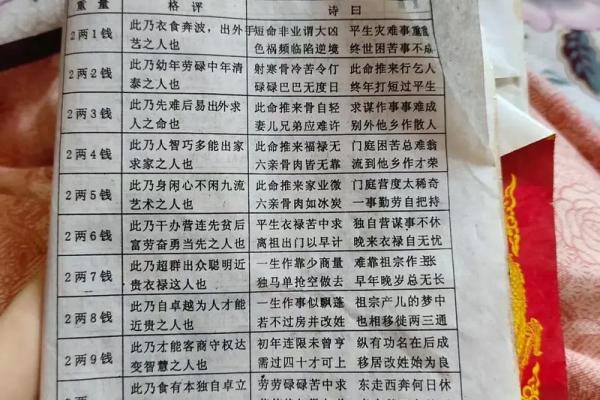 重量 格评 诗曰
2两1钱 此乃衣食奔波，出外手 短命非业谓大凶 平生灾难事重重
艺之人也 色祸频临陷逆境 终世困苦事不成
2两2钱 此乃幼年劳碌中年清 射寒骨冷苦令仃 此命推来行乞人
泰之人也 碌碌巴巴无度日 终年打短过平生
2两3钱 此乃先难后易出外求 此命推来骨自轻 求谋作事事难成
人之命也 妻儿兄弟应难许 别外他乡作散人
2两4钱 此乃人智巧多能出家 此命推来福禄无 门庭困苦总难翁
求家之人也 六亲骨肉皆无靠 流到他乡作才荣
2两5钱 此乃身闲心不闲九流 此命推来家业微 门庭营度太稀奇
艺术之人也 六亲骨肉如冰炭 一事勤劳自把持
2两6钱 此乃干办营连先贫后 平生衣禄苦中求 独自营谋事不休
富劳奋勇当先之人也 离祖出门以早计 晚来衣禄自无忧
2两7钱 此乃超群出众聪明近 一生作靠少商量 难靠祖宗作主张
贵衣禄这人也 独马单抢空做去 早年晚岁总无长
2两8钱 此乃自卓越为人才能 一生作事似飘蓬 祖宗产儿的梦中
近贵之人也 若不过房并改姓 也相移徒两三通
2两9钱 此乃才能客商守权达 初年连限未曾亨 纵有功名在后成
变智慧之人也 需过四十才可上 移居改姓始为良
此乃食有本独自卓立 劳劳碌碌苦中求 东走西奔何日休